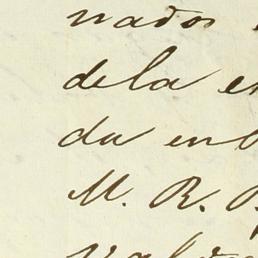 nados
dela
da en
M. R. P.